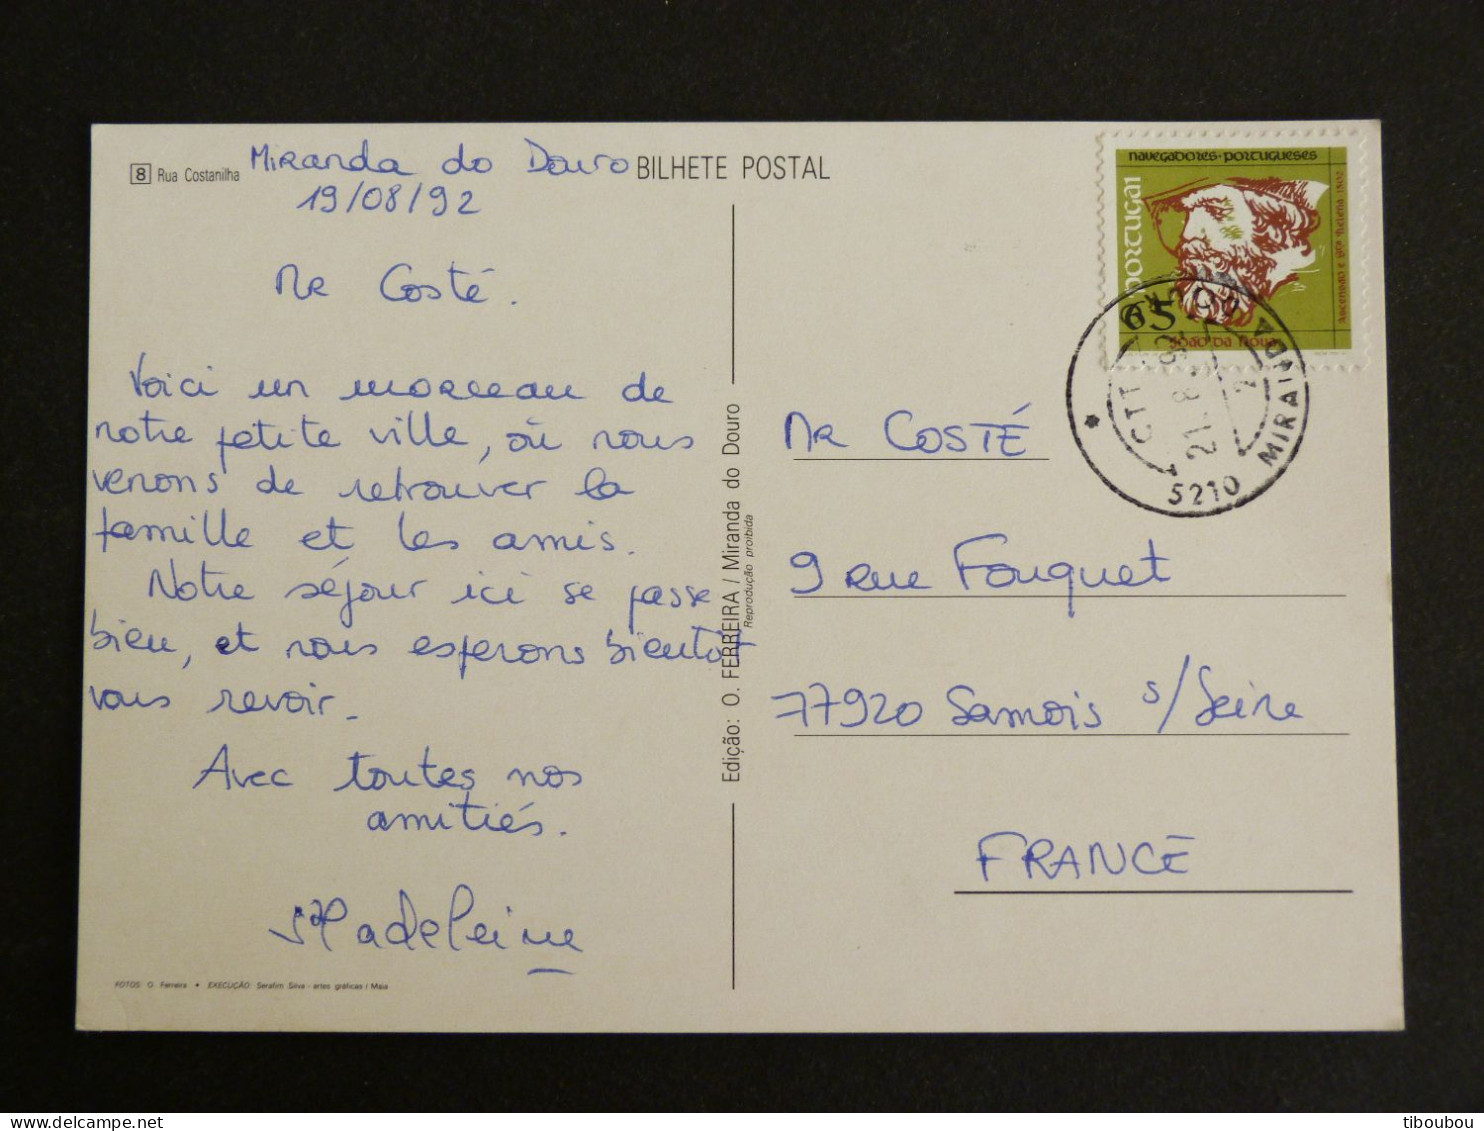 8 Rua Costanilha
BILHETE POSTAL
Miranda do Douro
19/08/92
Mr Costé.
Voici un morceau de
notre petite ville, où nous
venons de retrouver la
famille et les amis.
Notre séjour ici se passe
bien, et nous esperons bientôt
vous revoir.
Avec toutes nos
amitiés.
Madeleine
FOTOS: O. Ferreira • EXECUÇÃO: Serafim Silva - artes gráficas / Maia
Edição: O. FERREIRA / Miranda do Douro
Reprodução proibida
navegadores · portugueses
PORTUGAl
Ascensão e Stª Helena 1502
65.
João da Nova
CTT
21. 8. 92
2
5210 MIRANDA DOURO
MR COSTÉ
9 rue Fouquet
77920 Samois s/Seine
FRANCE
tiboubou